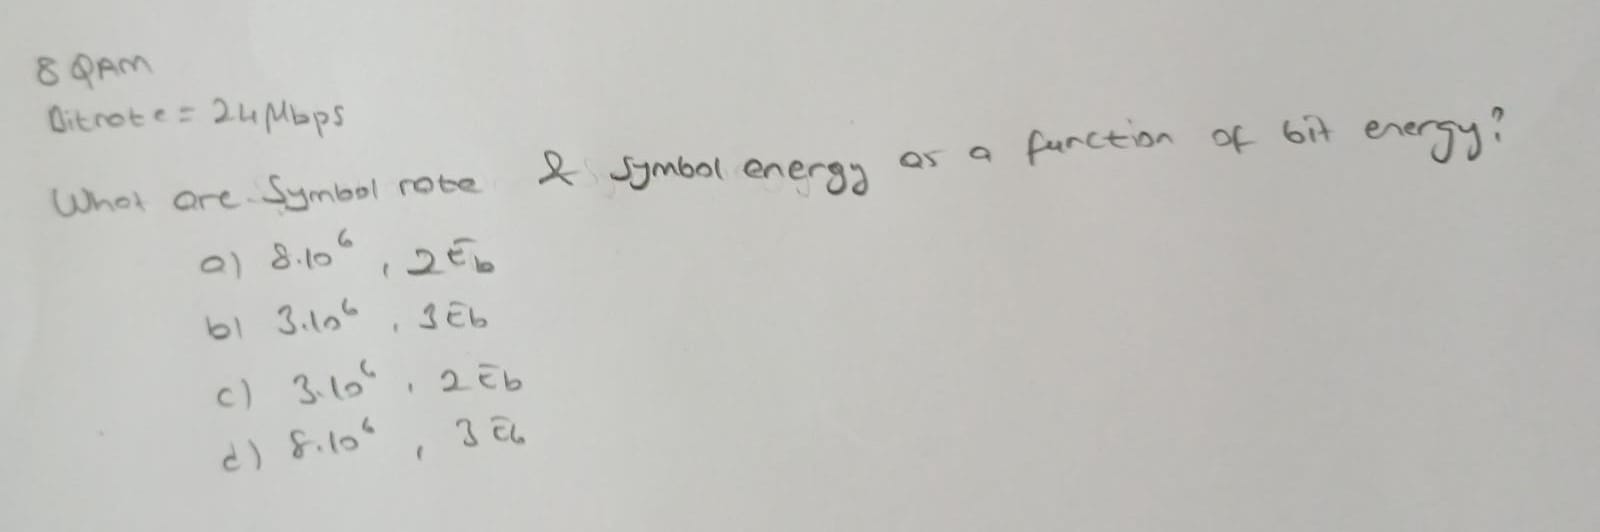 8 QAM
Bitrate = 24 Mbps
What are Symbol rate & Symbol energy as a function of bit energy?
a) 8.10⁶ , 2Eb
b) 3.10⁶ , 3Eb
c) 3.10⁶ , 2Eb
d) 8.10⁶ , 3Eb